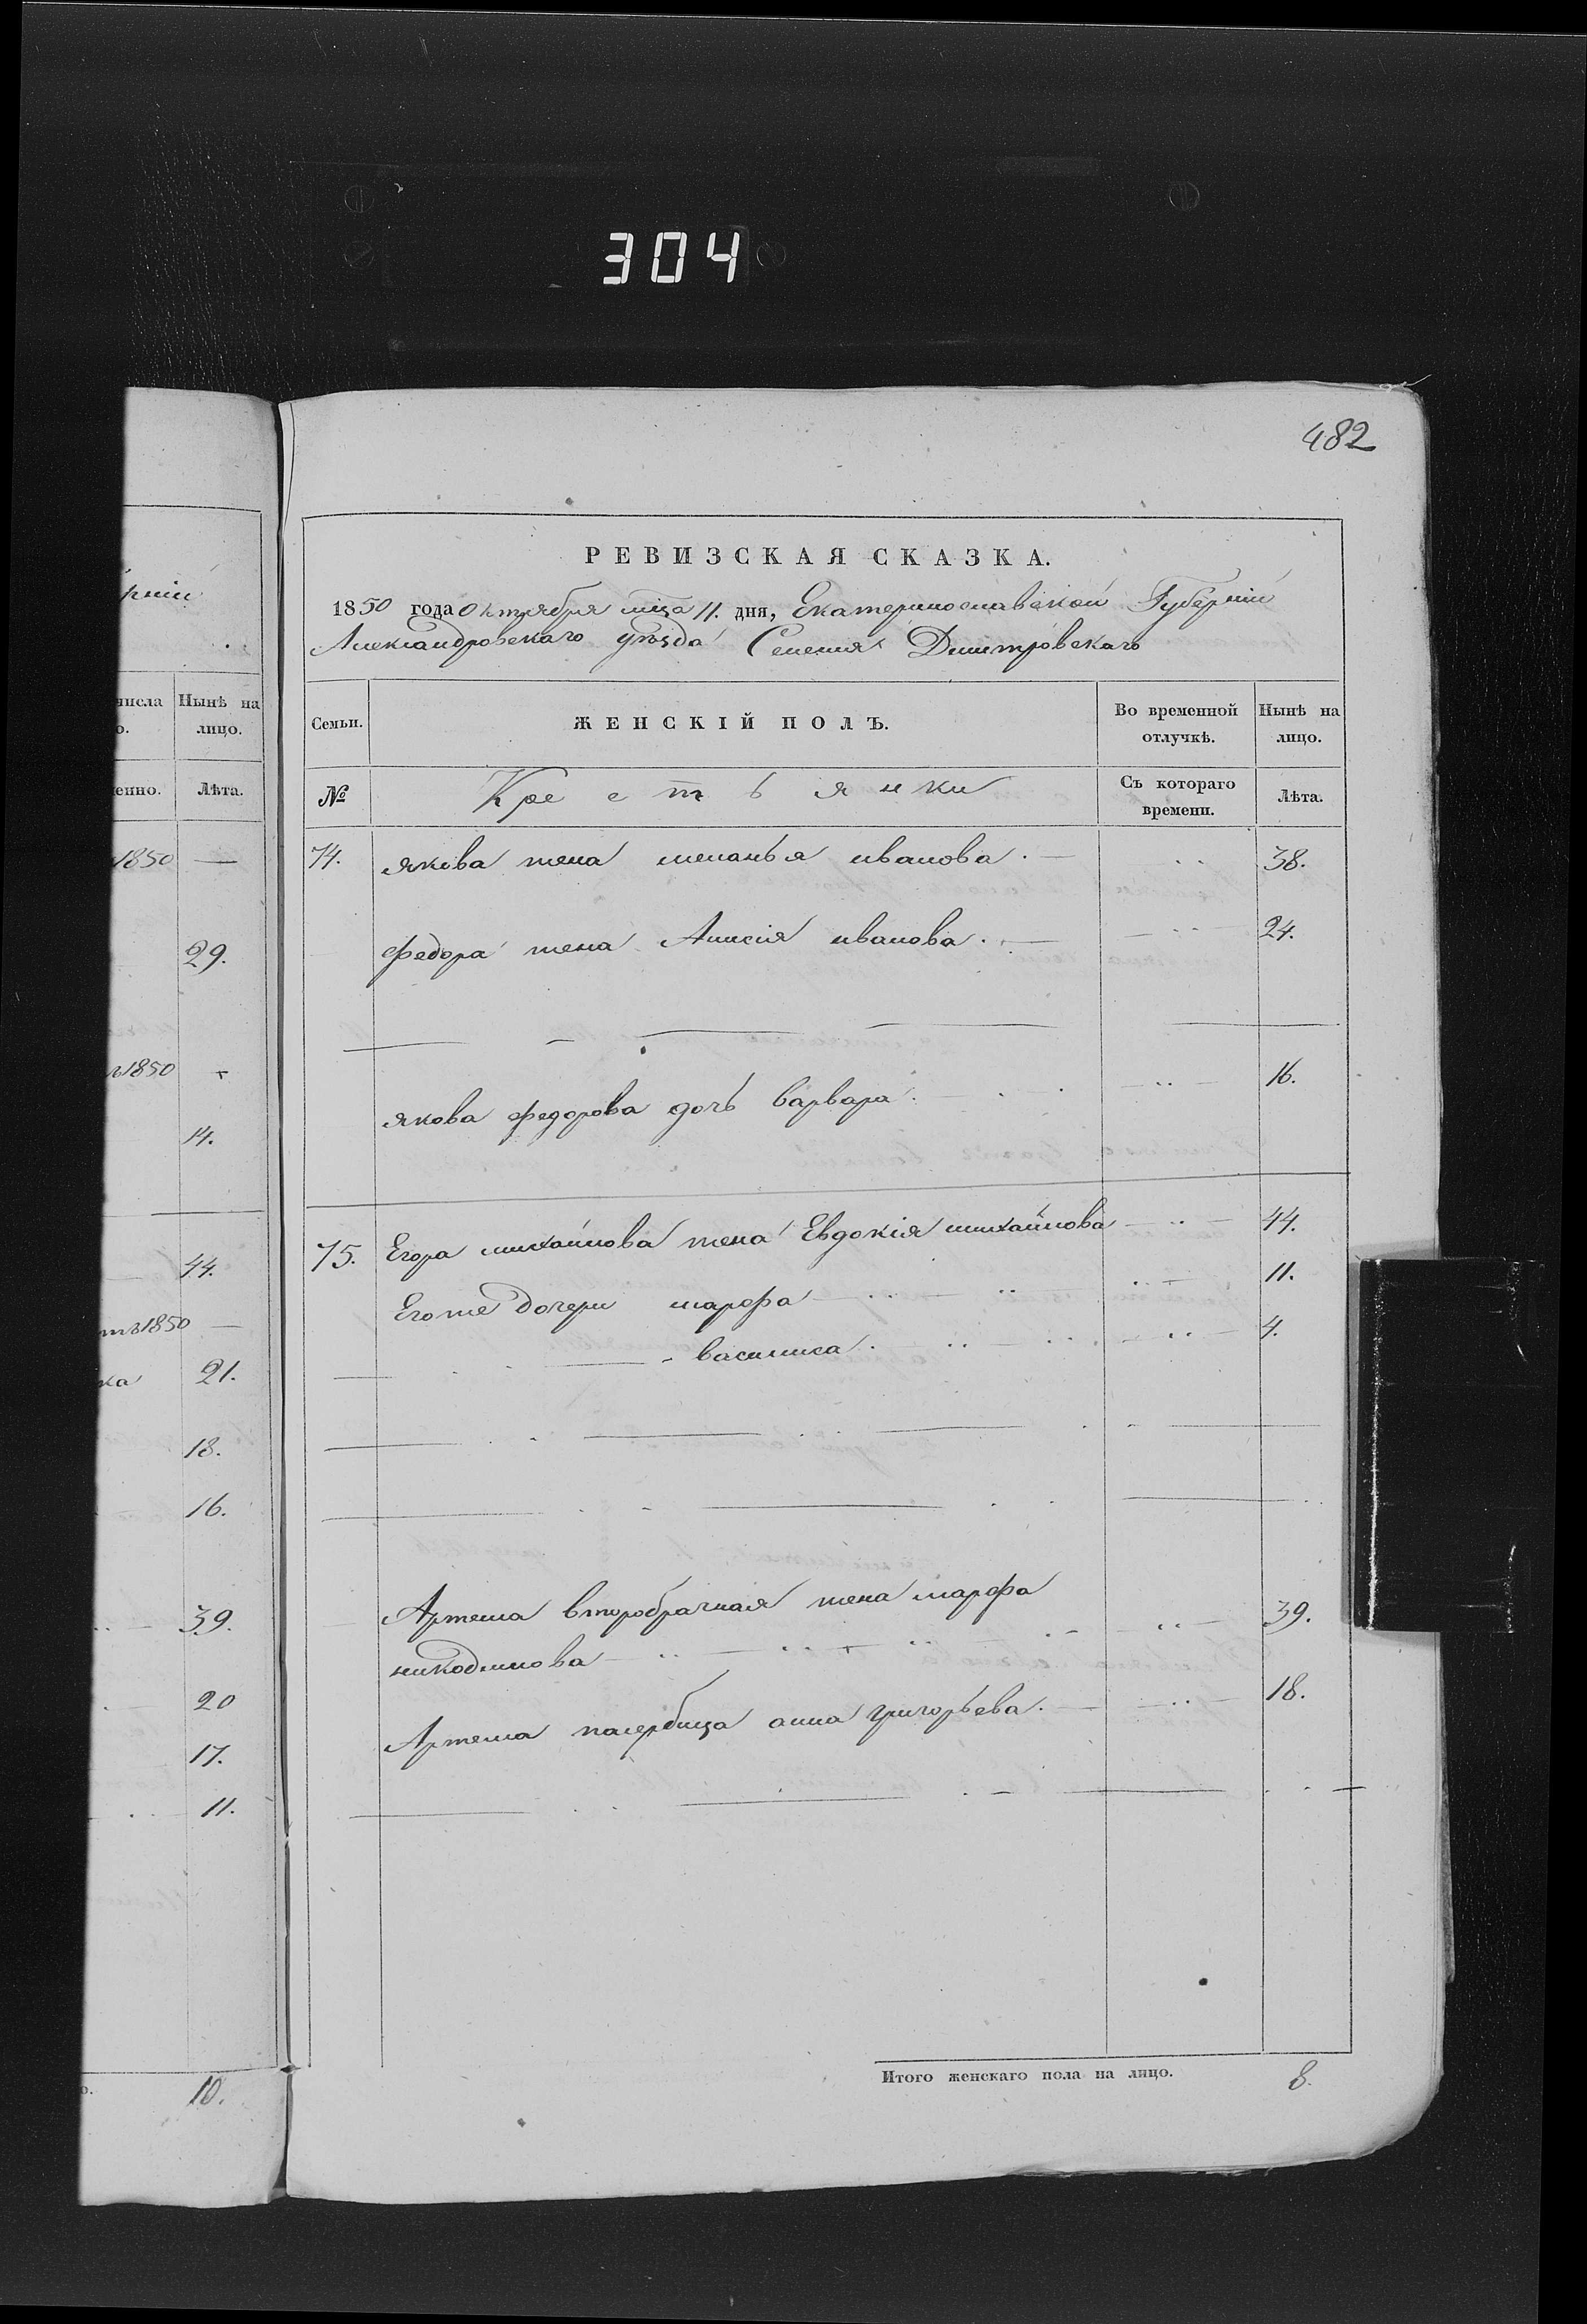 304
482
РЕВИЗСКАЯ СКАЗКА.
1850 года Октября мца 11. дня, Екатеринославской Губерніи
Александровскаго уѣзда Селенія Димитровскаго
рніи
числа Нынѣ на
о. лицо.
Семьи. ЖЕНСКІЙ ПОЛЪ. Во временной Нынѣ на
отлучкѣ. лицо.
енно. Лѣта.
№ Крестьянки Съ котораго Лѣта.
времени.
1850 —
74. якова жена меланья иванова. — 38.
29.
федора жена Анисія иванова. — 24.
1850
якова федорова дочь варвара. 16.
14.
75. Егора михайлова жена Евдокія михайлова 44.
44.
Егоже дочери марфа 11.
тъ1850 —
— василиса. 4.
ка 21.
18.
16.
Артема второбрачная жена марфа 39.
39.
никодимова
20
Артема падербица анна григорьева. 18.
17.
11.
Итого женскаго пола на лицо. 8.
о. 10.